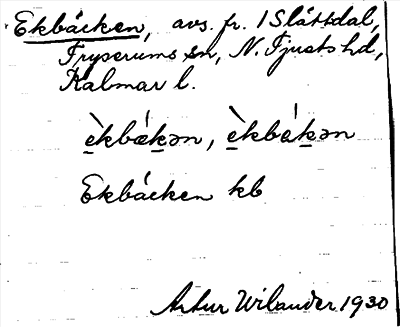 Ekbäcken, avs. fr. 1 Slättdal,
Fryserums sn, N. Tjusts hd,
Kalmar l.
è̱kbæ̀ḵən, è̱kbáḵən
Ekbäcken kb
Artur Wilander 1930